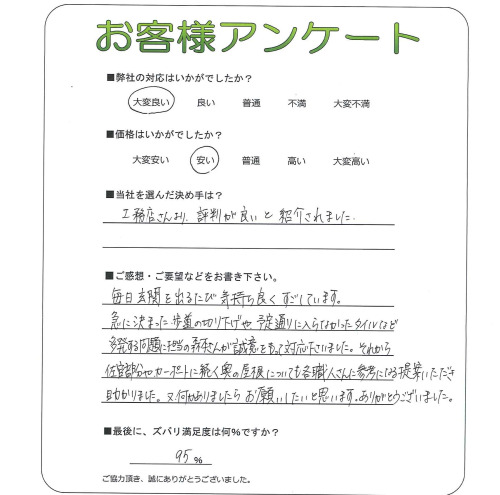 お客様アンケート
■弊社の対応はいかがでしたか?
大変良い 良い 普通 不満 大変不満
■価格はいかがでしたか?
大変安い 安い 普通 高い 大変高い
■当社を選んだ決め手は?
工務店さんより、評判が良いと紹介されました.
■ご感想・ご要望などをお書き下さい。
毎日玄関を出るたび気持ち良くすごしています。
急に決まった歩道の切り下げや予定通りに入らなかったタイルなど
多発する問題に担当の森さんが誠意をもって対応下さいました。それから
佐官部分やカーポートに続く奥の屋根についても各職人さんに参考になる提案いただき
助かりました。又何かありましたらお願いしたいと思います。ありがとうございました。
■最後に、ズバリ満足度は何%ですか?
95 %
ご協力頂き、誠にありがとうございました。